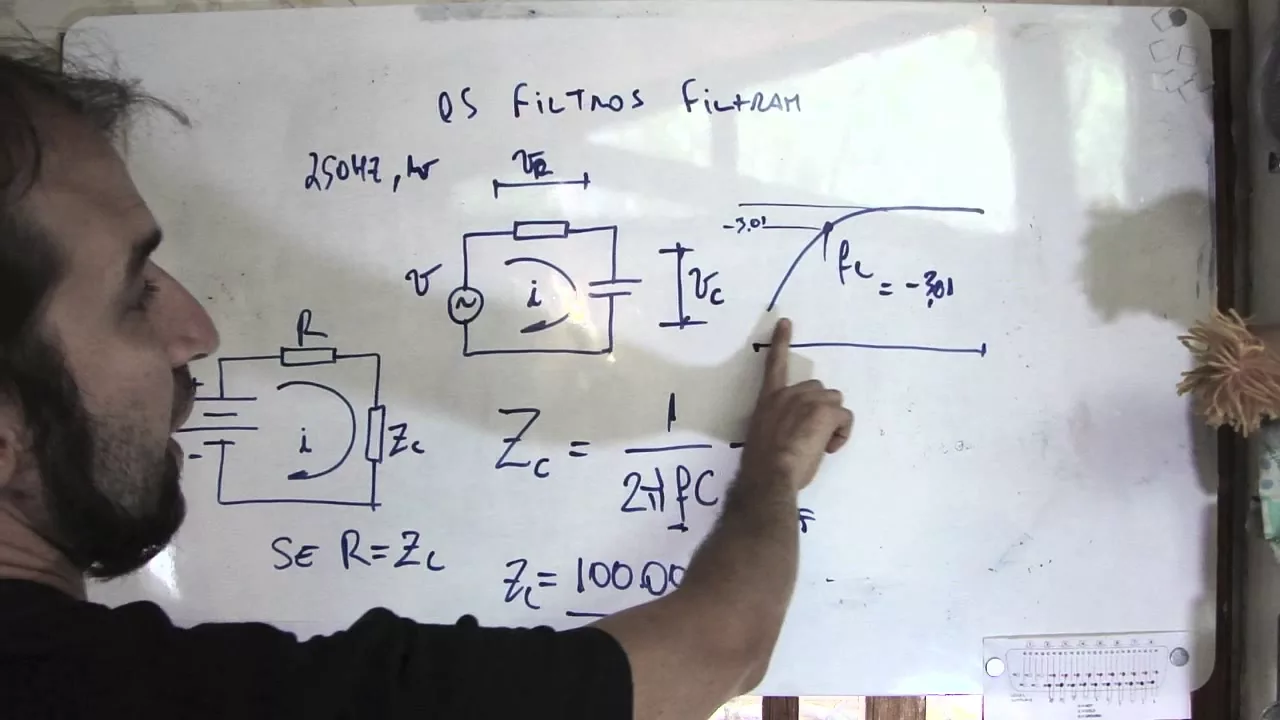 OS FILTROS FILTRAM
250HZ, 1V
VR
V
i
VC
-3.01
fc = -3,01
R
+
-
i
Zc
SE R=Zc
Zc = 1
2πfC
Zc = 100.00